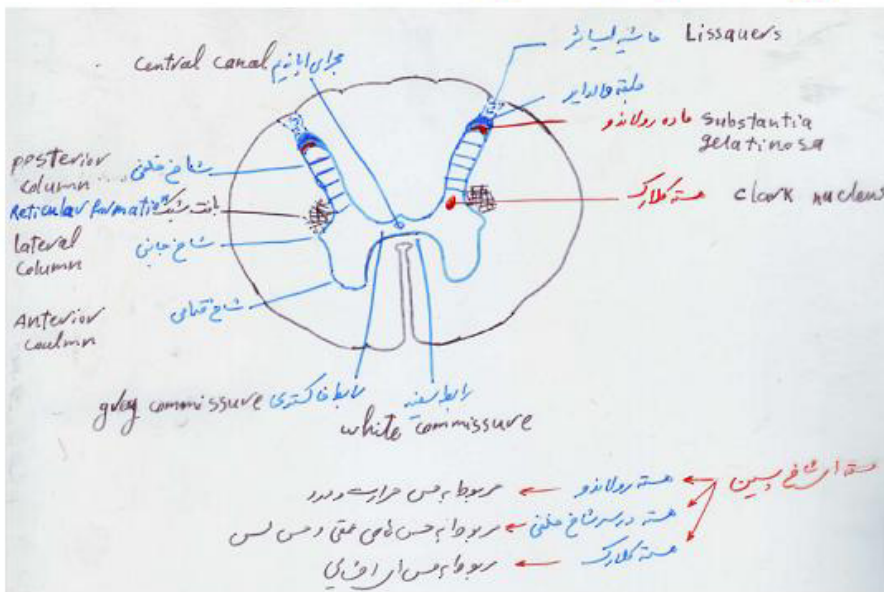 central canal مجرای اپاندیم
حاشیه لیسائر Lissauers
طبقه والدایر
ماده رولاندو substantia
gelatinosa
posterior
column شاخ خلفی
Reticular formation بافت مشبک
هسته کلارک clark nucleus
lateral
column شاخ جانبی
Anterior
coulmn شاخ قدامی
gray commissure رابط خاکستری
رابط سفید
white commissure
هسته ای شاخ پسین
هسته رولاندو ← مربوط به حس حرارت و درد
هسته در سر شاخ خلفی ← مربوط به حس های عمقی و حس لمس
هسته کلارک ← مربوط به حس ای احشایی